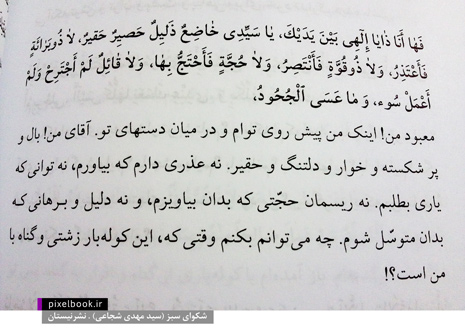 فَهٰا أَنَا ذٰايٰا إِلٰهِى بَيْنَ يَدَيْكَ، يٰا سَيِّدِى خٰاضِعٌ ذَلِيلٌ حَصِيرٌ حَقِيرٌ، لاٰ ذُوبَرٰائَةٍ
فَأَعْتَذِرُ، وَلاٰ ذُوقُوَّةٍ فَأَنْتَصِرُ، وَلاٰ حُجَّةٍ فَأَحْتَجُّ بِهٰا، وَلاٰ قٰائِلٌ لَمْ أَجْتَرِحْ وَلَمْ
أَعْمَلْ سُوء، وَ مٰا عَسَى اَلْجُحُودُ،
معبود من! اینک من پیش روی توام و در میان دستهای تو. آقای من! بال و
پر شکسته و خوار و دلتنگ و حقیر. نه عذری دارم که بیاورم، نه توانی که
یاری بطلبم. نه ریسمان حجّتی که بدان بیاویزم، و نه دلیل و برهانی که
بدان متوسّل شوم. چه می‌توانم بکنم وقتی که، این کوله‌بار زشتی و گناه با
من است؟!
pixelbook.ir
شکوای سبز (سید مهدی شجاعی) . نشرنیستان